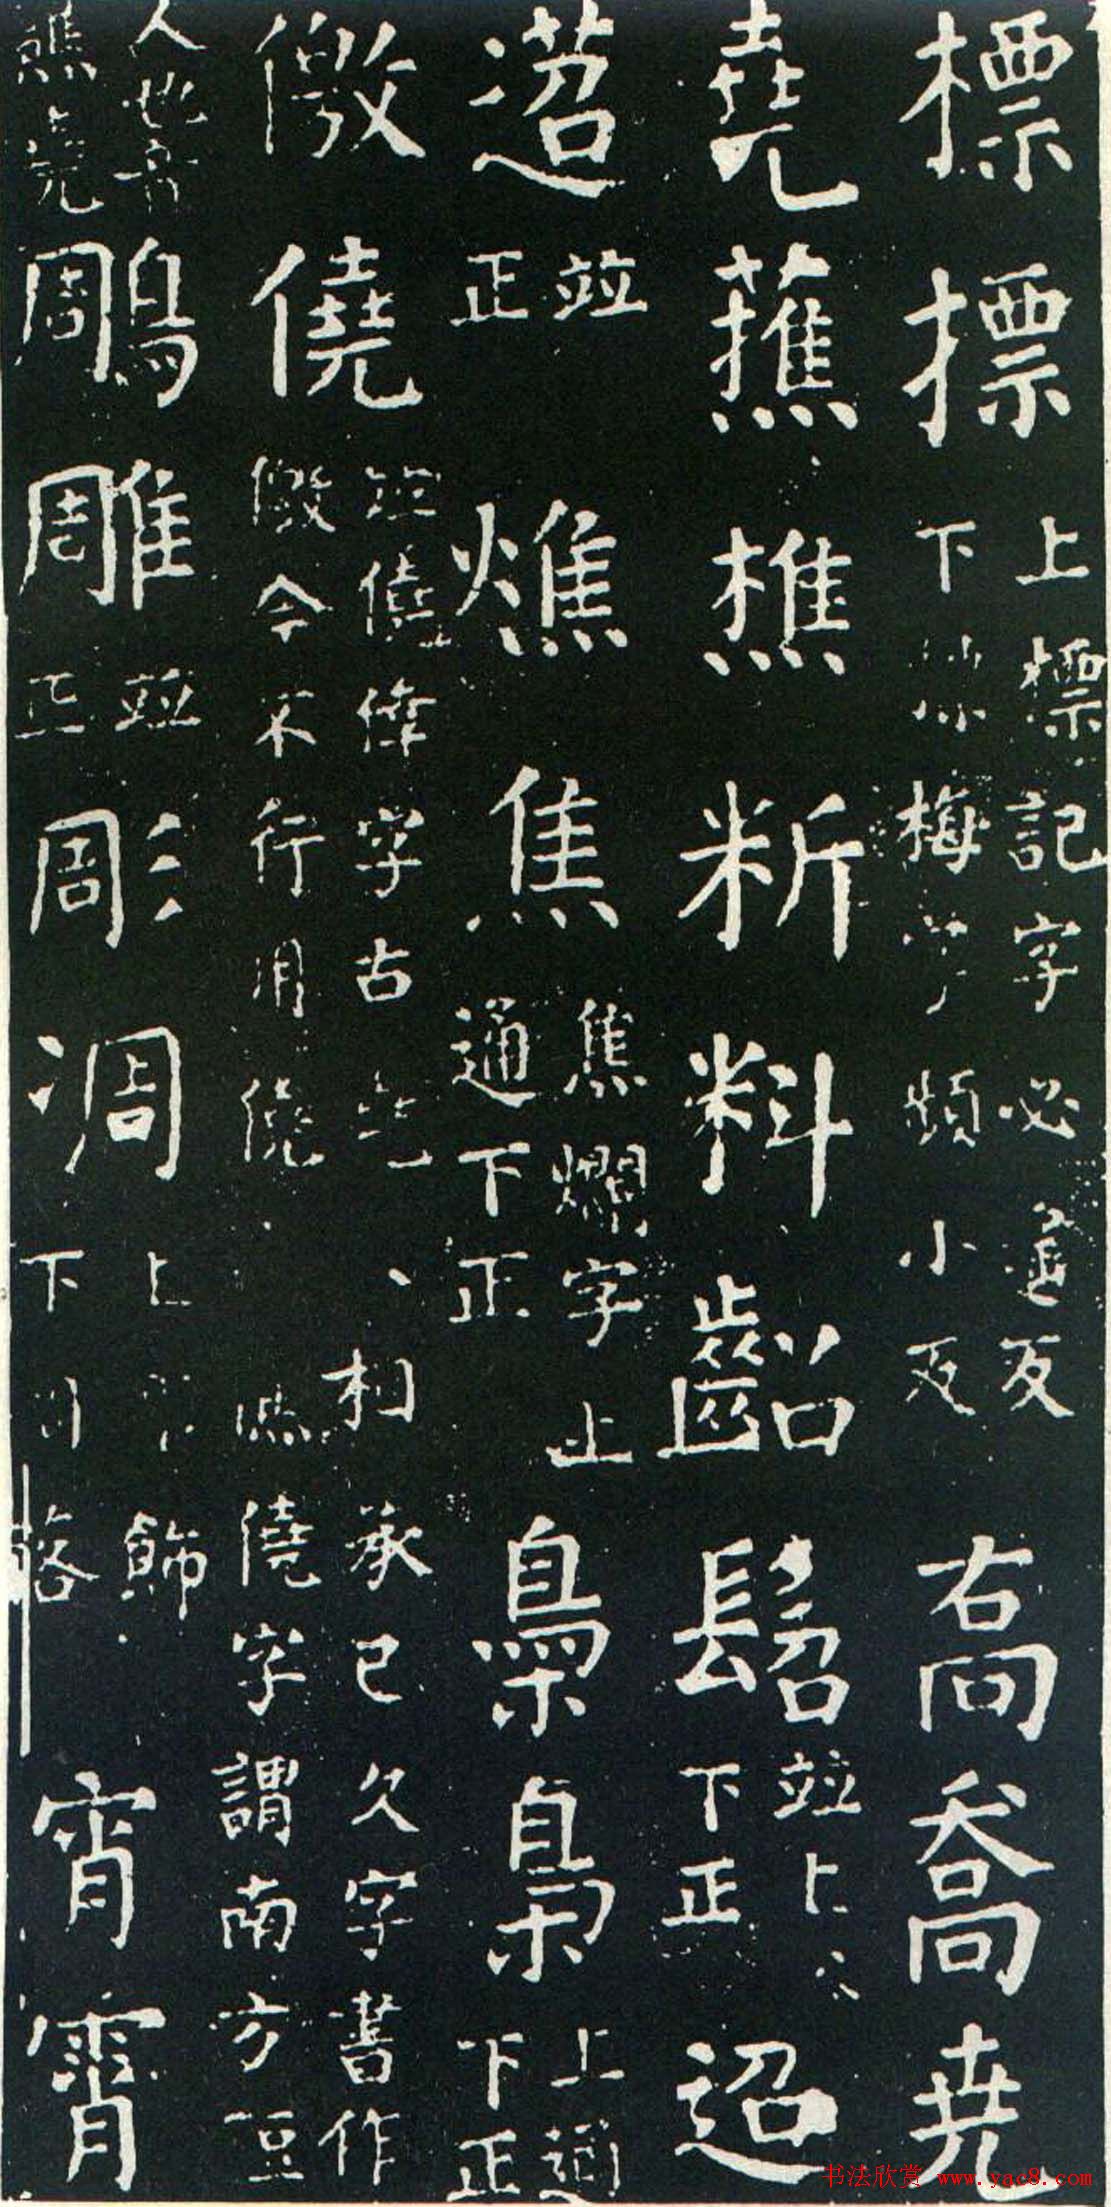 標摽上標記字必遥反下摽梅字頻小反喬喬尭
堯蕉樵䉼料齠髫並上下正迢
蒞並正燋焦焦爛字上通下正梟梟上通下正
儌僥並僥倖字古 相承已久字書作儌今不行用僥 僥字謂南方
人也音 鵰雕並正彫凋上 飾下 落宵霄
書法欣赏 www.yac8.com